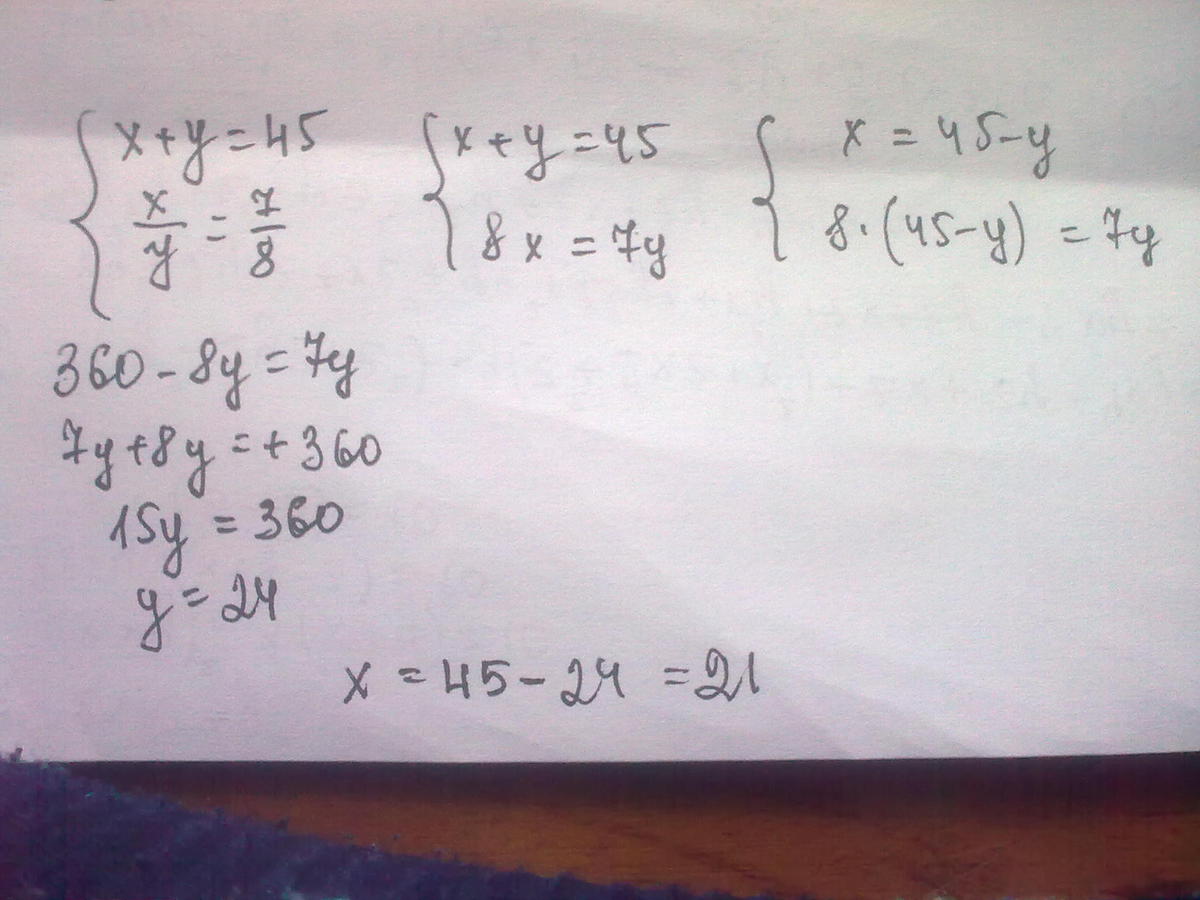 { x + y = 45 { x + y = 45 { x = 45 - y
x/y = 7/8 8x = 7y 8·(45-y) = 7y
360 - 8y = 7y
7y + 8y = + 360
15y = 360
y = 24
x = 45 - 24 = 21